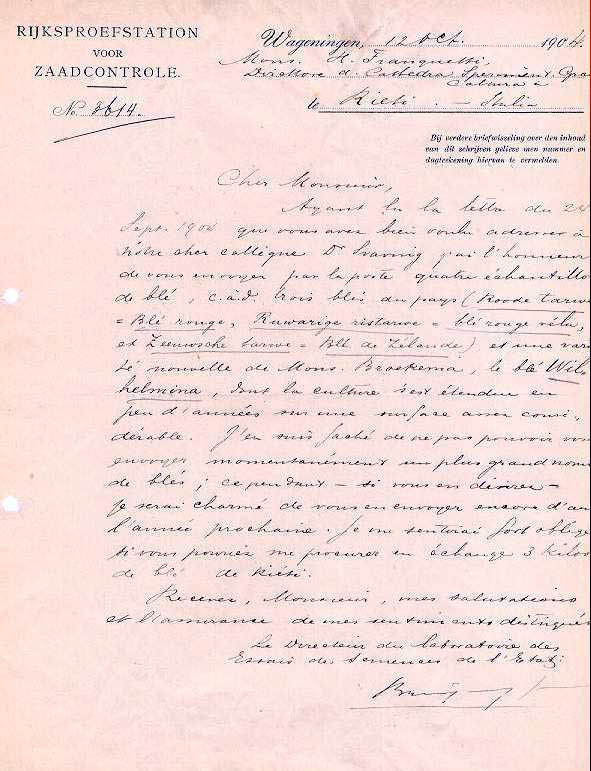 RIJKSPROEFSTATION
VOOR
ZAADCONTROLE.
No. 3614.
Wageningen, 12 Oct. 1904.
Mons. H.
Direttore d. Cattedra Speriment.
te Rieti. — Italia
Bij verdere briefwisseling over den inhoud
van dit schrijven gelieve men nummer en
dagteekening hiervan te vermelden.
Cher Monsieur,
Ayant lu la lettre du 24
Sept. 1904 que vous avez bien voulu adresser à
nôtre cher collègue Dr j'ai l'honneur
de vous envoyer par la poste quatre échantillo
de blé, c.à.d. trois blés du pays (Roode tarwe
= Blé rouge, Ruwarige = blé rouge vélu,
et Zeeuwsche tarwe = Blé de Zélande) et une vari
té nouvelle de Mons. Broekema, le blé Wil
helmina, dont la culture s'est étendue en
peu d'années sur une surface assez consi-
dérable. J'en suis faché de ne pas pouvoir vous
envoyer momentanément un plus grand nom
de blés; cependant – si vous en désirez –
je serai charmé de vous en envoyer encore d'au
l'année prochaine. Je me sentirai fort obligé
si vous pouviez me procurer en échange 3 kilos
de blé de Riéti.
Recevez, Monsieur, mes salutations
et l'assurance de mes sentiments distingués
Le Directeur du Laboratoire des
Essais de Semences de l'Etat: